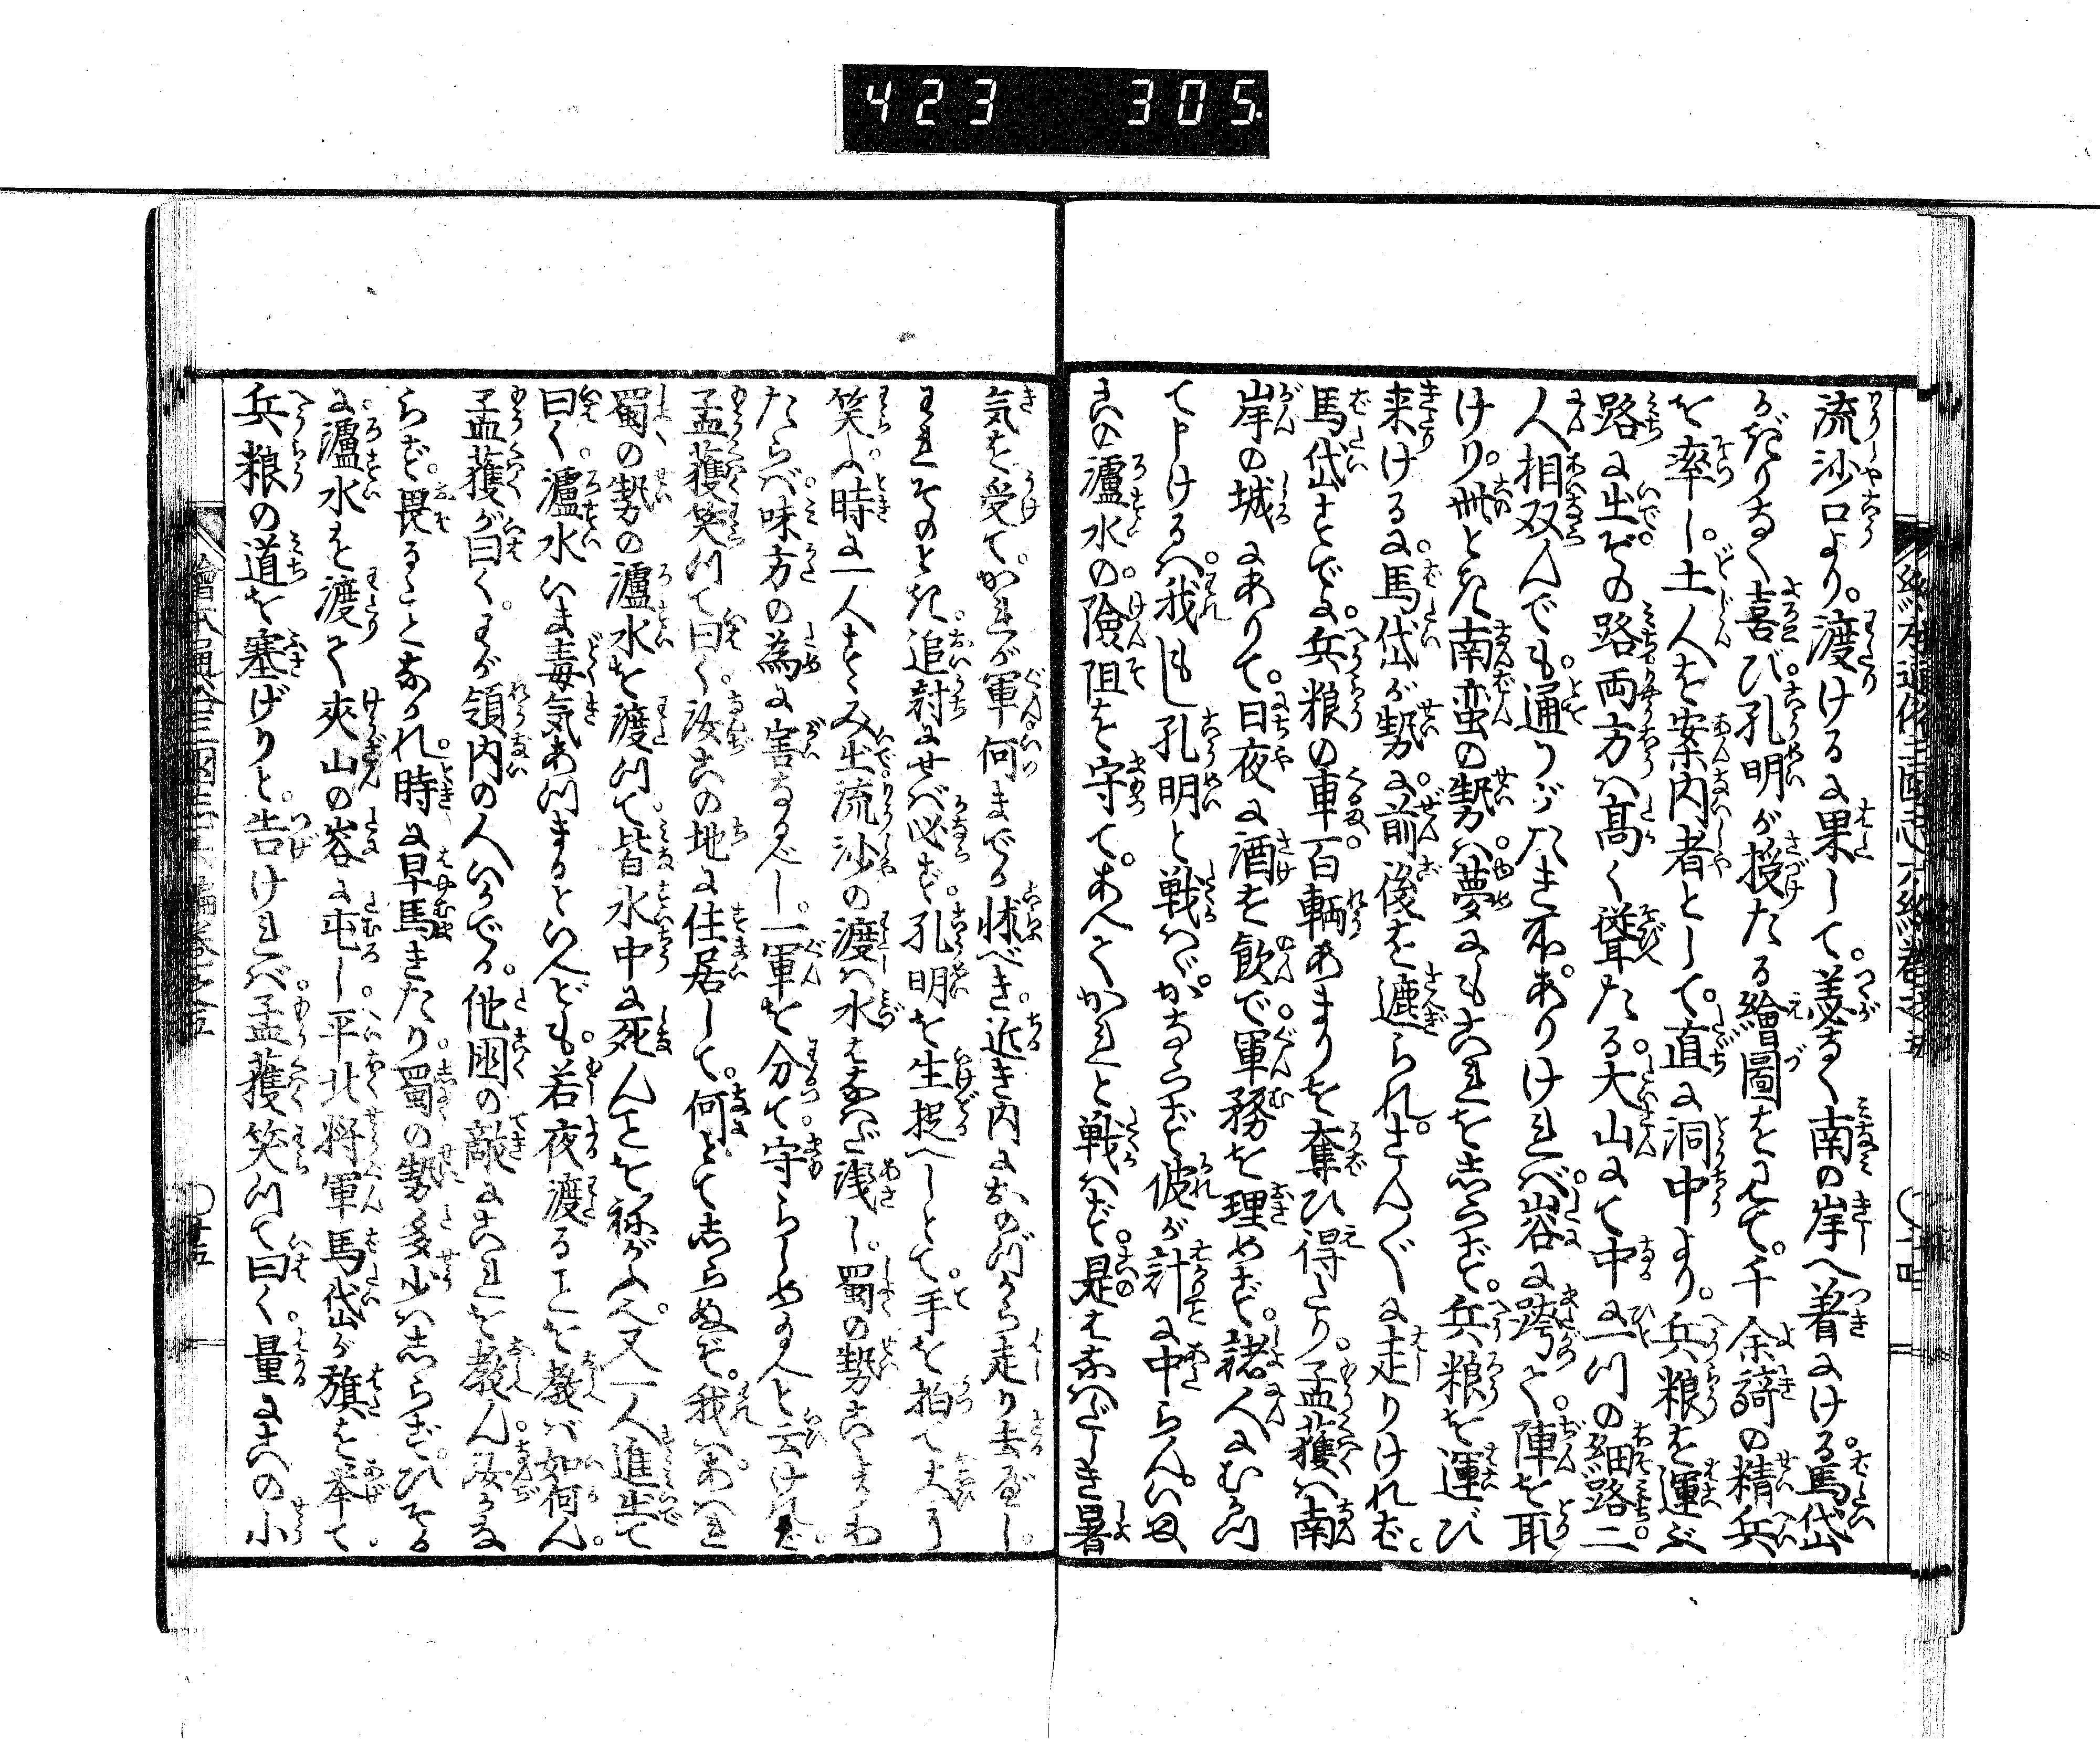 423 305
繪本通俗三國志六編卷之五 〇十四
流沙口より。渡けるに果して。恙なく南の岸へ着にける。馬岱
かぎりなく喜び。孔明が授たる繪圖をみて。千余騎の精兵
を率し。土人を案内者として。直に洞中より。兵粮を運ぶ
路に出。その路両方は高く聳たる。大山にて中に一ツの細路。二
人相双んでも。通りがたき所。ありければ。谷に跨て。陣を取
けり。此とき南蛮の勢は。夢にもこれをしらず。兵粮を運び
来ける。に馬岱が勢に。前後を遮られ。さんぐに走りければ。
馬岱さとで。兵粮の車。百輌あまりを奪ひ得たり。孟獲は南
岸の城にありて。日夜に酒を飲で。軍務を理めず。諸人にむかつ
て申けるは。我もし孔明と戦はゞ。かならず彼が計に中らん。いま
この瀘水の。険阻を守て。あへてかれと戦はず。是をなはげしき暑
気を受て。かれが軍。何までか怺べき。近き内におのづから走り去べし。
われそのとき。追討にせば必ず。孔明を生捉べしとて。手を拍て大に
笑ふ。時に一人すゝみ出。流沙の渡は水はなはだ浅し。蜀の勢こゝをわ
たらば。味方の為に害なるべし。一軍を分て。守らしめ給へと云ければ。
孟獲笑ツて曰く。汝この地に住居して。何とてしらぬぞ。我はあはれ
蜀の勢の瀘水を渡ツて。皆水中に死んことを祢がふ。又一人進出て
曰く。瀘水いま毒気あつまるといへども。若夜渡ることを教ば如何ん。
孟獲が曰く。わが領内の人いかでか。他国の敵にこれを教ん。汝かな
らず。畏ることなかれ。時に早馬きたり。蜀の勢多少はしらず。ひそか
に。瀘水を渡て夾山の谷に屯し。平北将軍馬岱が旗を挙て。
兵粮の道を塞げりと。告ければ。孟獲笑ツて曰く。量にこれの小
繪本通俗三國志六編卷之五 〇十五